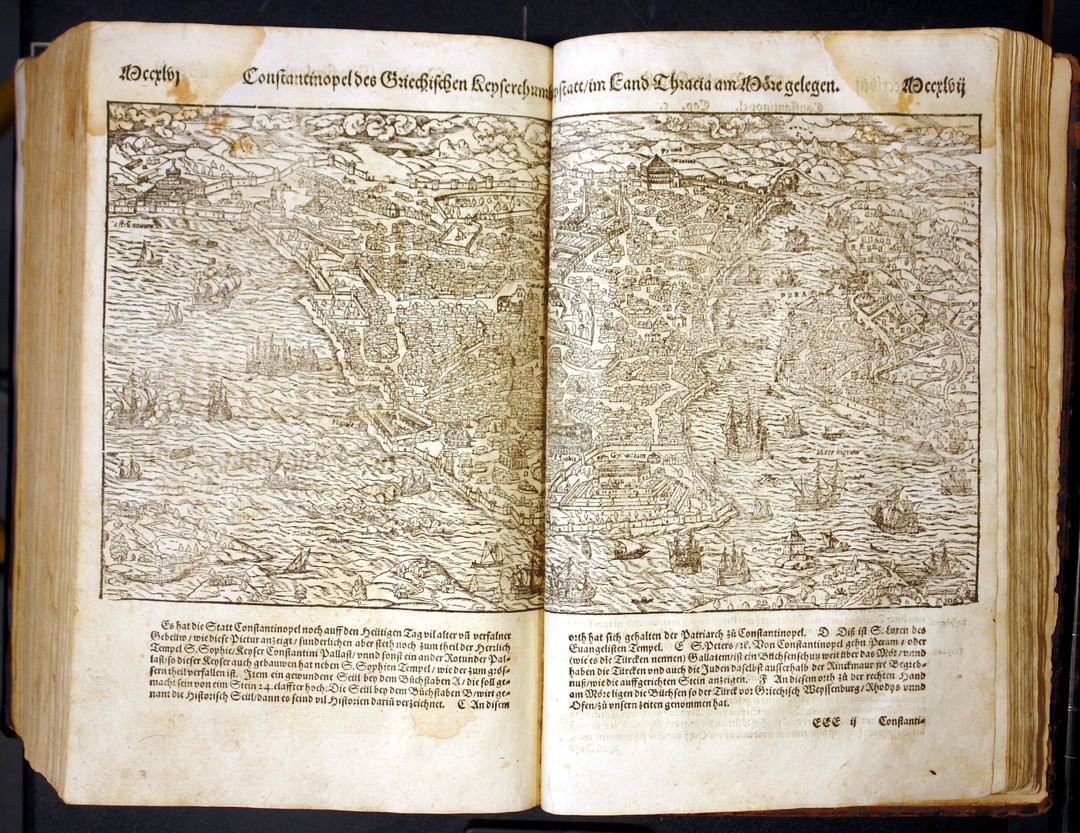 Mccxlvj
Constantinopel des Griechischen Keyserthum
Es hat die Statt Constantinopel noch auff den Heiltigen Tag vil alter vñ verfalner
Gebeüw / wie diese Pictur anzeigt / sunderlichen aber steth noch zum theil der Herrlich
Tempel S. Sophie / Keyser Constantini Pallast / vnnd sonst ein ander Rotunder Pal-
last / so dieser Keyser auch gebauwen hat neben S. Sophien Tempel / wie der zum grös-
sern theil verfallen ist. Item ein gewundene Seül bey dem Büchstaben A / die soll ge-
macht sein von eim Stein 24. claffter hoch. Die Seül bey dem Büchstaben B / wirt ge-
nant die Historisch Seül / dann es seind vil Historien darin̄ verzeichnet. C An disem
pstatt / im Land Thracia am Möre gelegen.
Mccxlvij
PERA
orth hat sich gehalten der Patriarch zů Constantinopel. D Diß ist S. Luxen des
Euangelisten Tempel. E S. Peters / ꝛc. Von Constantinopel gehn Peram / oder
(wie es die Türcken nennen) Gallatem / ist ein Büchsenschutz weit über das Mör / vnnd
haben die Türcken vnd auch die Juden daselbst ausserhalb der Rinckmaur jre Begreb-
nuß / wie die auffgerichten Stein anzeigen. F An diesem orth zů der rechten Hand
am Möre ligen die Büchsen so der Türck vor Griechisch Weyssenburg / Rhodys vnnd
Ofen / zů vnsern zeiten genommen hat.
EEE ij Constanti-